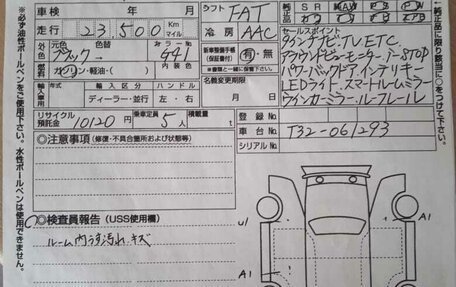 車検 年 月
シフト FAT
走行 23,500 Km
冷房 AAC
元色 色替
外色 ブラック→
カラーNo. G41
新車整備手帳 (保証書) 有・無
ガソリン・軽油・( )
名義変更期限
ディーラー・並行 左・右
年 月 日
リサイクル預託金 10120円 乗車定員 5人 積載量 t
登録No.
車台No. T32-061293
シリアルNo.
SR AW PS PW
セールスポイント
9インチナビ.TV.ETC
アラウンドビューモニター.i-STOP
パワーバックドア.インテリキー
LEDライト.スマートルームミラー
ウインカーミラー.ルーフレール
◎注意事項 (修復・不具合箇所および状態等)
◎検査員報告 (USS使用欄)
ルーム内うす汚れ キズ
U1
A1
A1
※必ず油性ボールペンをご使用下さい。水性ボールペンは使用できません。
純正品に限り該当に○をつけて下さい。